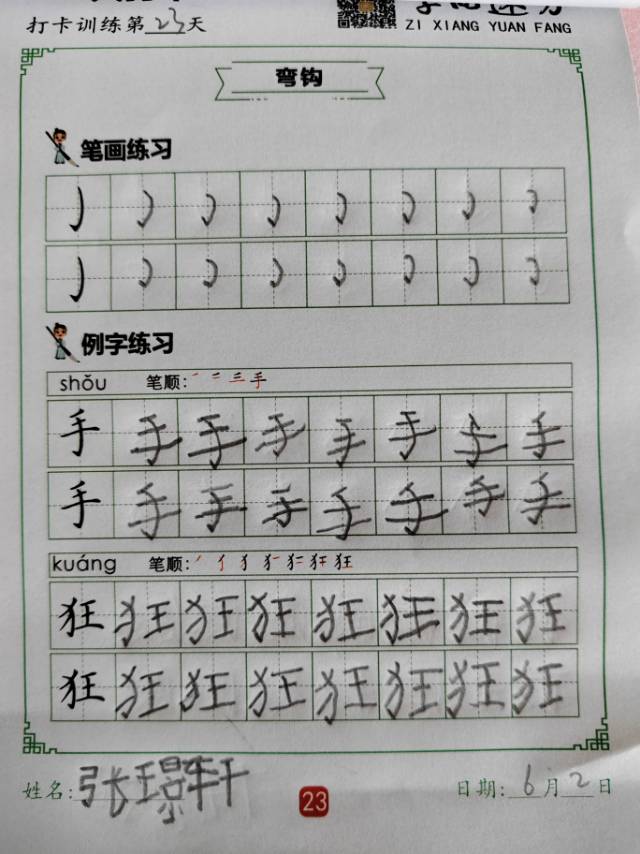 打卡训练第23天
ZI XIANG YUAN FANG
弯钩
笔画练习
例字练习
shǒu 笔顺：
手 手 手 手 手 手 手 手
手 手 手 手 手 手 手 手
kuáng 笔顺：
狂 狂 狂 狂 狂 狂 狂 狂
狂 狂 狂 狂 狂 狂 狂 狂
姓名：张璟轩
23
日期：6月2日